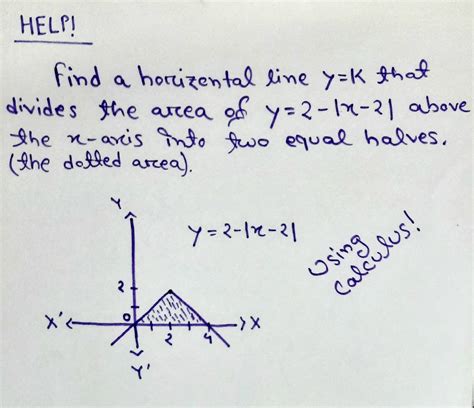 HELP!
Find a horizental line y=K that
divides the area of y=2-|x-2| above
the x-axis into two equal halves.
(the dotted area).
Y
y=2-|x-2|
using
calculus!
2
X'
0
2
4
X
Y'